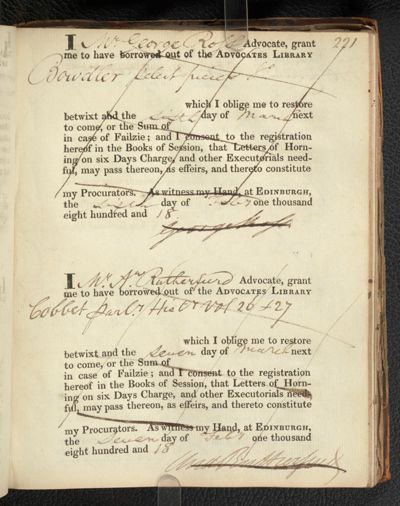 221
I Mr George Ross Advocate, grant
me to have borrowed out of the ADVOCATES LIBRARY
Bowdler select pieces
which I oblige me to restore
betwixt and the sixth day of March next
to come, or the Sum of
in case of Failzie; and I consent to the registration
hereof in the Books of Session, that Letters of Horn-
ing on six Days Charge, and other Executorials need-
ful, may pass thereon, as effeirs, and thereto constitute
my Procurators. As witness my Hand, at EDINBURGH,
the sixth day of Feby one thousand
eight hundred and 18
George Ross
I Mr Aw Rutherfurd Advocate, grant
me to have borrowed out of the ADVOCATES LIBRARY
Cobbet Parly Hisy Vol 26 & 27
which I oblige me to restore
betwixt and the seven day of March next
to come, or the Sum of
in case of Failzie; and I consent to the registration
hereof in the Books of Session, that Letters of Horn-
ing on six Days Charge, and other Executorials need-
ful, may pass thereon, as effeirs, and thereto constitute
my Procurators. As witness my Hand, at EDINBURGH,
the Seven day of Feby one thousand
eight hundred and 18
Rutherfurd